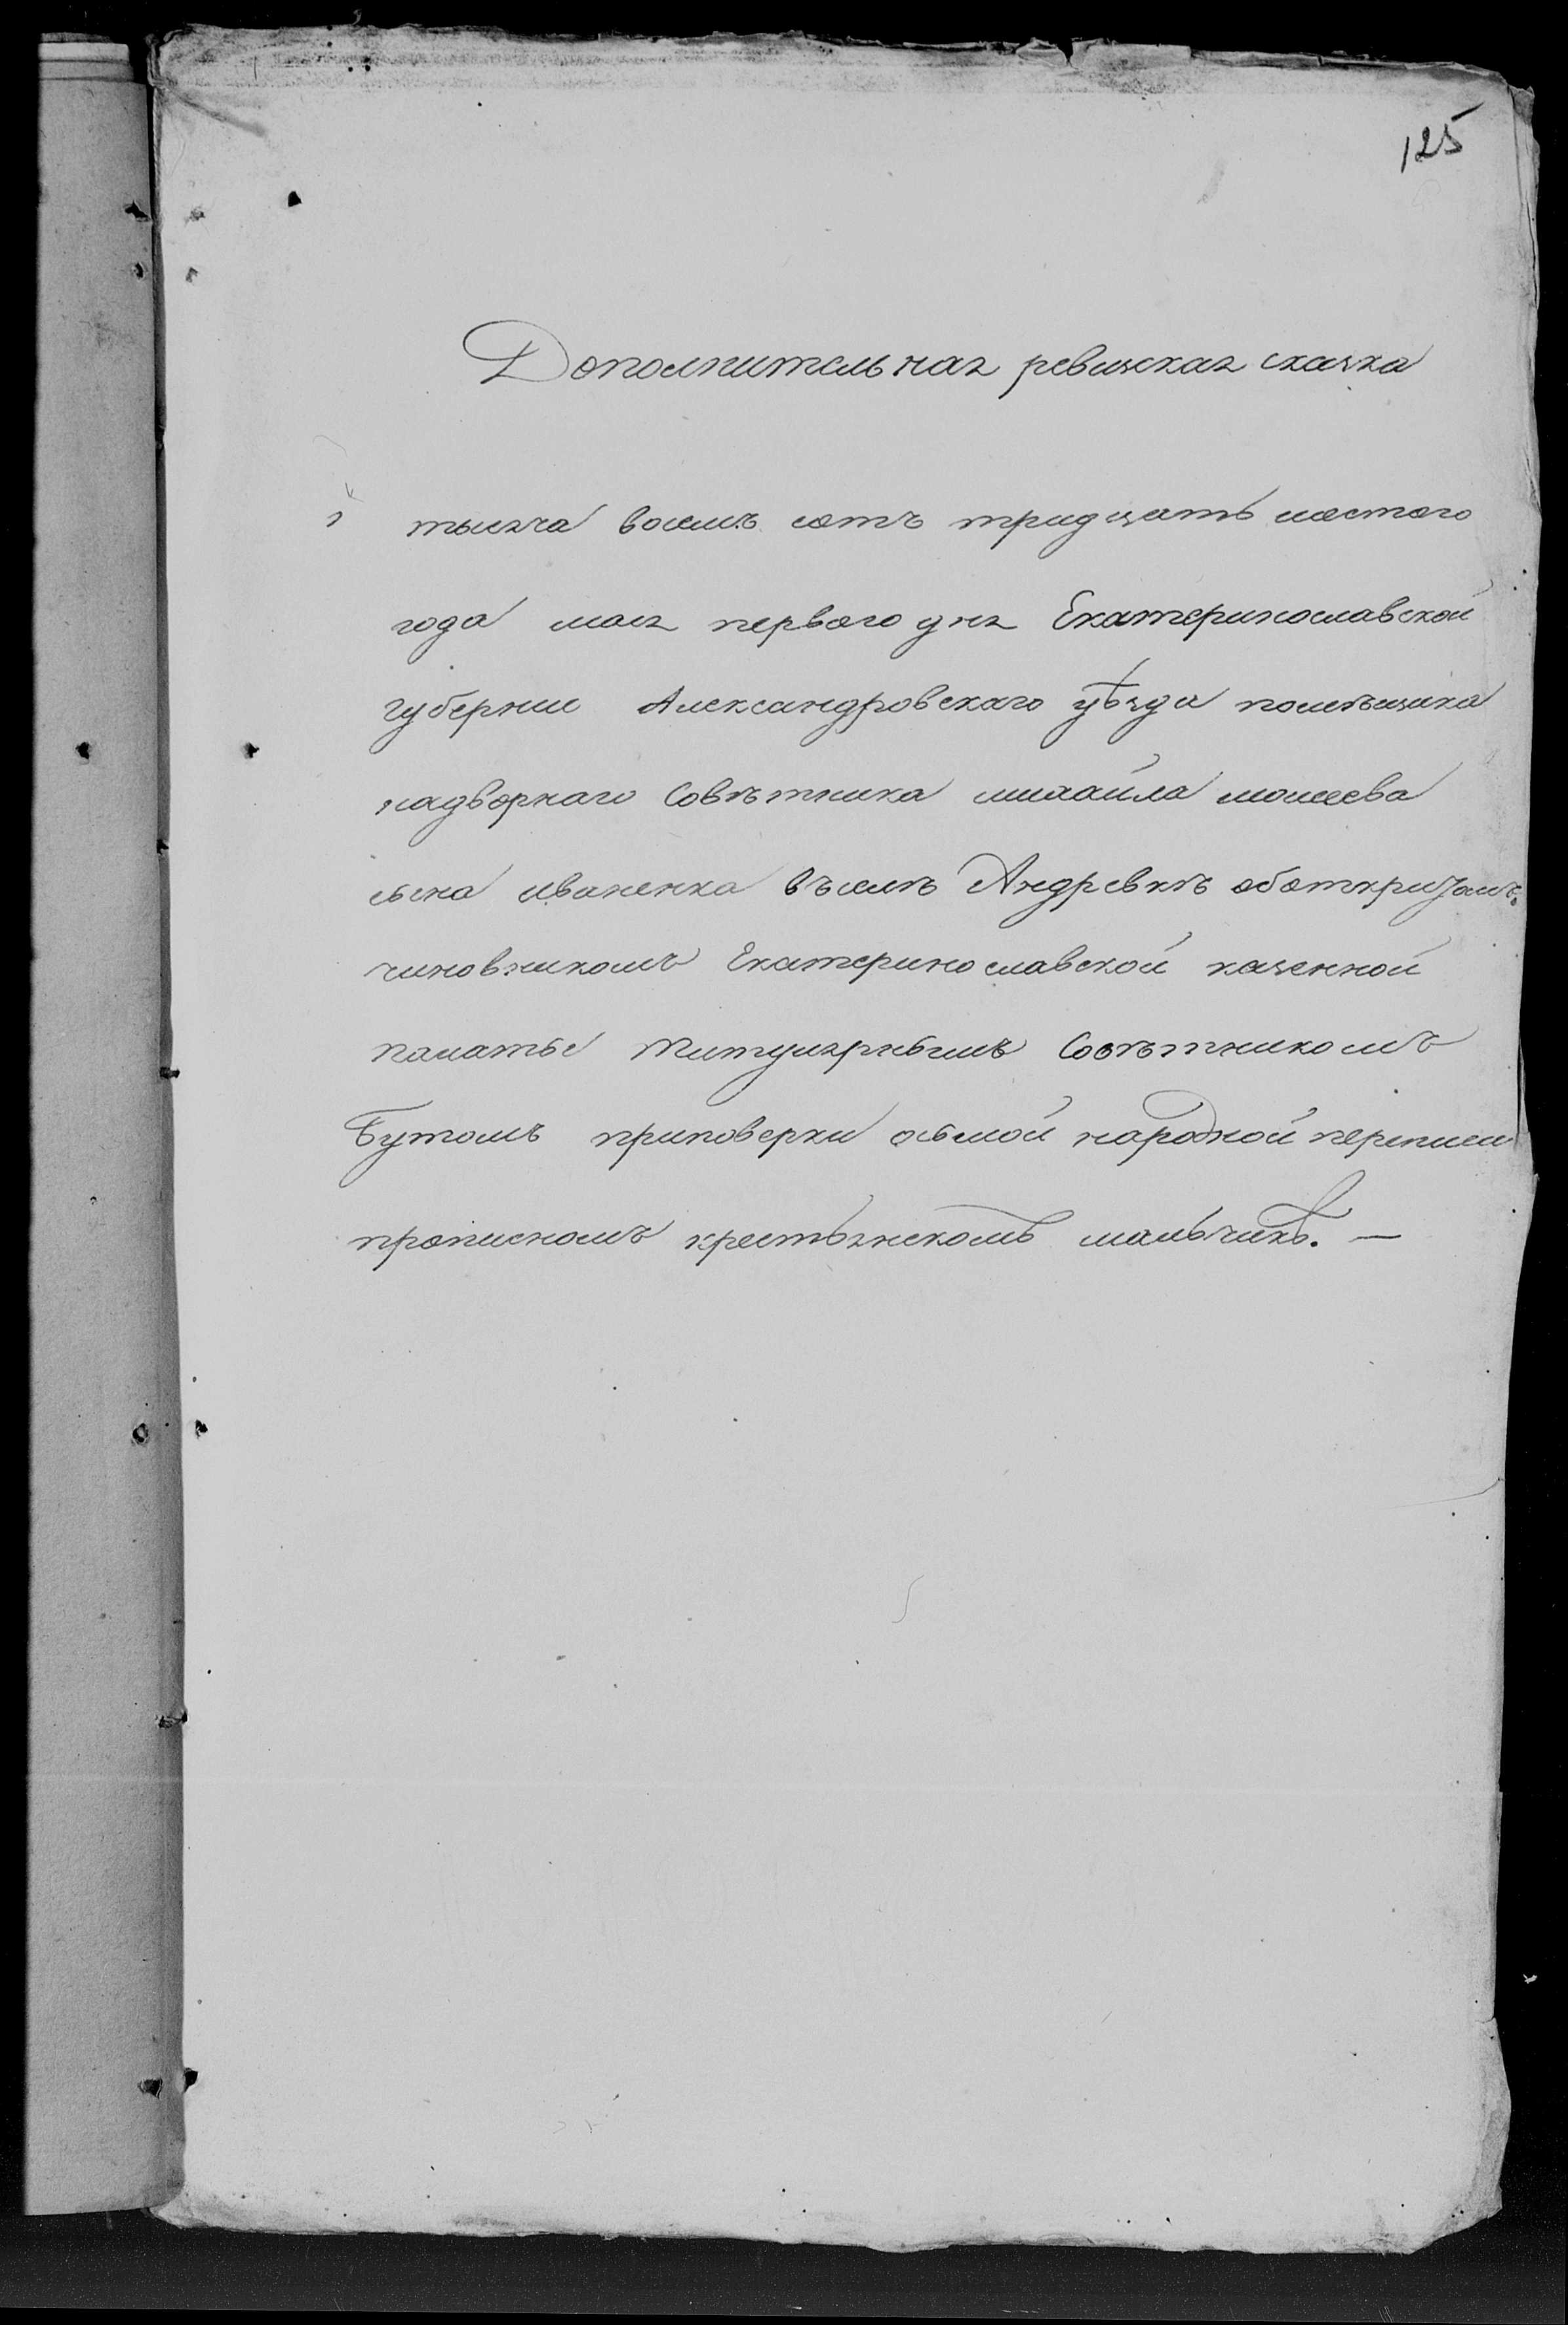 125
Дополнительная ревизская сказка
тысяча восемъ сотъ тридцать шестого
года мая первого дня Екатеринославской
губернии Александровскаго уѣзда помѣщика
надворнаго Совѣтника михайла моисеева
сына иваненка въ селѣ Андревкѣ
чиновникомъ Екатеринославской казенной
палаты Титулярнымъ Совѣтникомъ
Бутомъ приповерки осьмой народной переписи
прописномъ крестьянскомъ мальчикѣ. —